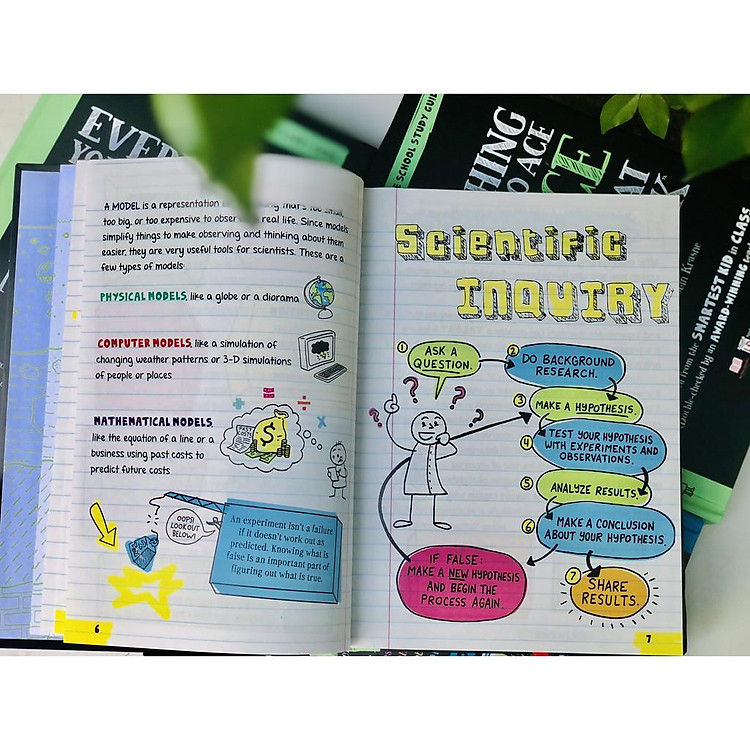 EVER
YO
HING
O ACE
CE
AT
E SCHOOL STUDY GUID
Krasne
from the SMARTEST KID in CLASS
uble-checked by an AWARD-WINNING
A MODEL is a representation that's too small,
too big, or too expensive to observe real life. Since models
simplify things to make observing and thinking about them
easier, they are very useful tools for scientists. These are a
few types of models:
PHYSICAL MODELS, like a globe or a diorama
COMPUTER MODELS, like a simulation of
changing weather patterns or 3-D simulations
of people or places
MATHEMATICAL MODELS,
like the equation of a line or a
business using past costs to
predict future costs
PAST
COSTS
$
?
OOPS!
LOOK OUT
BELOW!
An experiment isn't a failure
if it doesn't work out as
predicted. Knowing what is
false is an important part of
figuring out what is true.
6
Scientific
INQUIRY
1 ASK A
QUESTION.
2 DO BACKGROUND
RESEARCH.
3 MAKE A HYPOTHESIS.
4 TEST YOUR HYPOTHESIS
WITH EXPERIMENTS AND
OBSERVATIONS.
5 ANALYZE RESULTS
6 MAKE A CONCLUSION
ABOUT YOUR HYPOTHESIS.
IF FALSE:
MAKE A NEW HYPOTHESIS
AND BEGIN THE
PROCESS AGAIN.
7 SHARE
RESULTS.
? ? ? ? ?
7